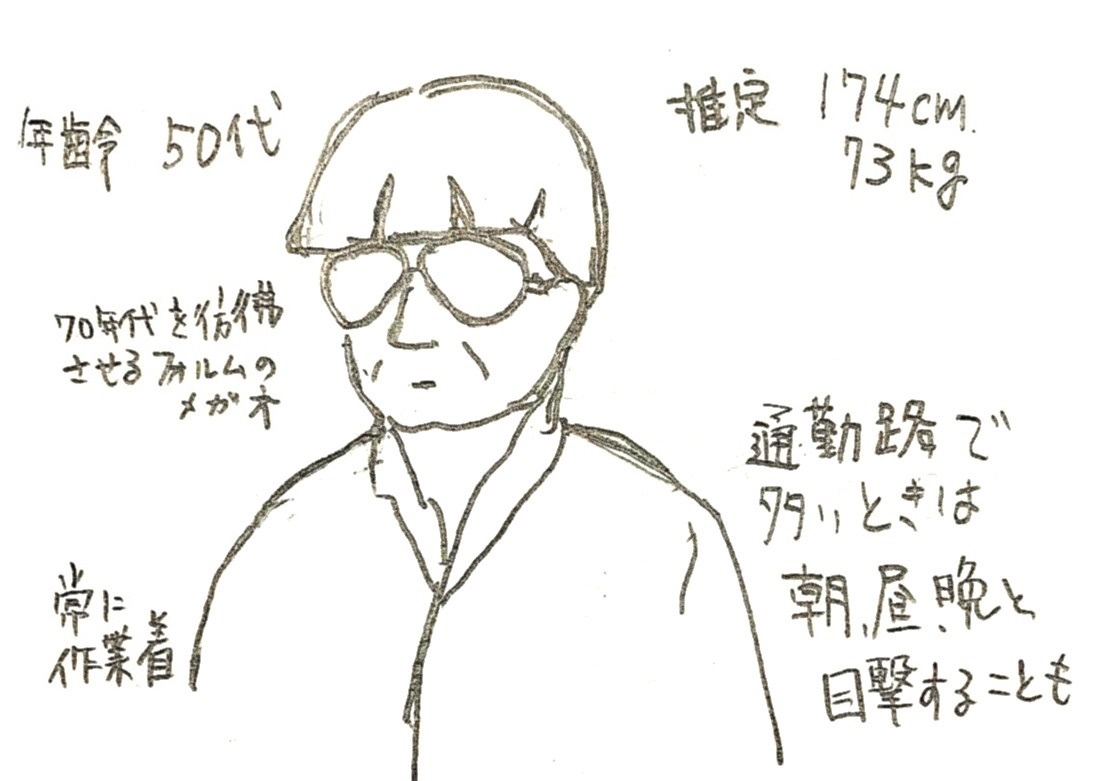 年齢 50代
推定 174cm.
73kg
70年代を彷彿
させるフォルムの
メガネ
常に
作業着
通勤路で
多いときは
朝、昼、晩と
目撃することも